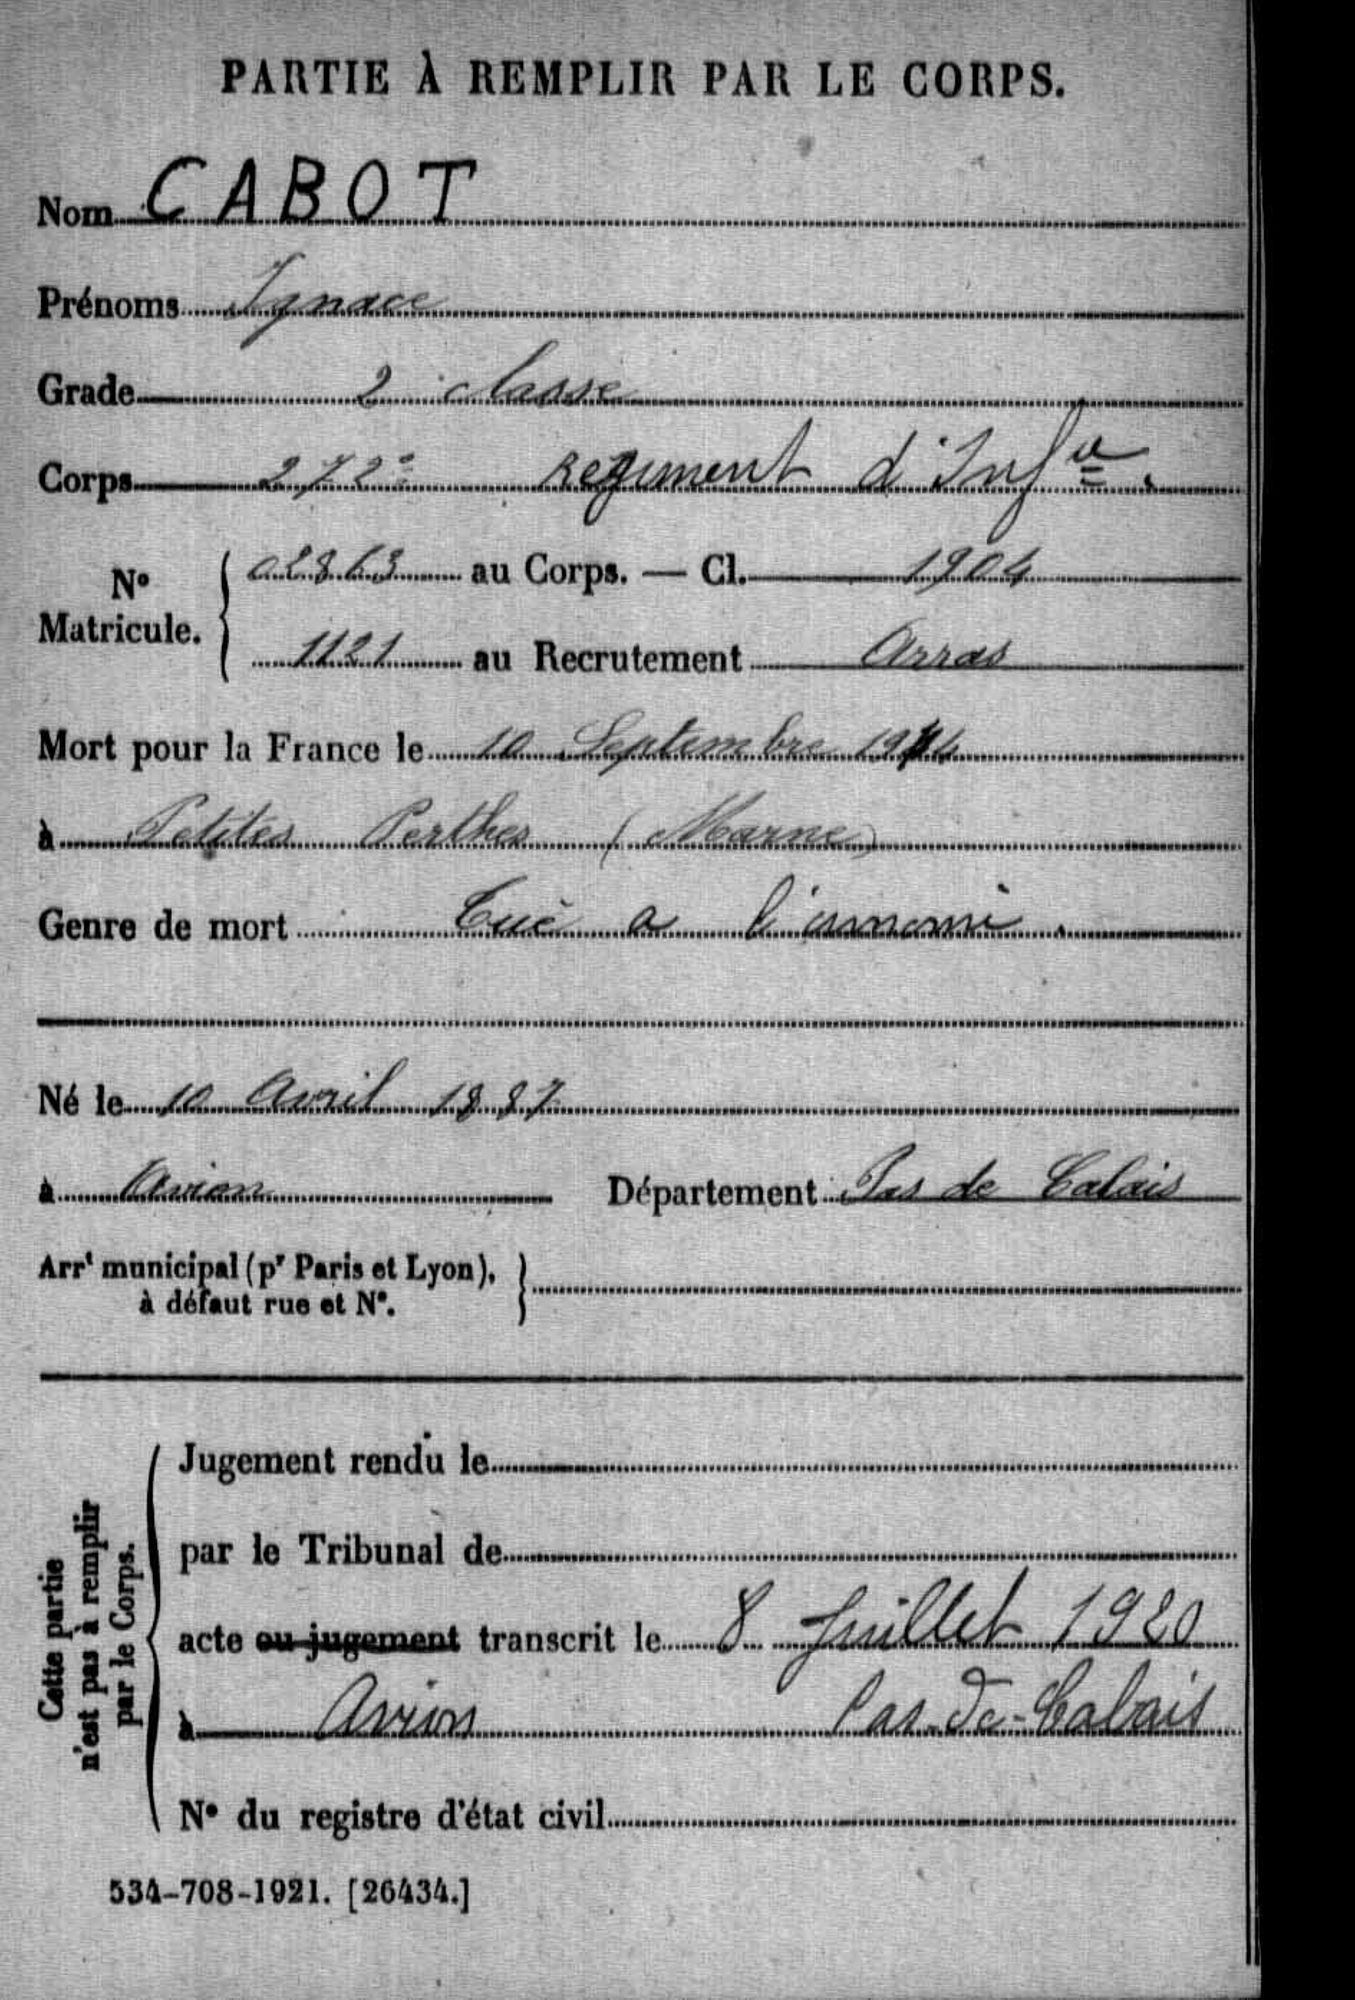 PARTIE À REMPLIR PAR LE CORPS.
Nom CABOT
Prénoms Ignace
Grade 2 classe
Corps 272e Regiment d'Infie.
N° Matricule. { 02863 au Corps. — Cl. 1904
1121 au Recrutement Arras
Mort pour la France le 10 Septembre 1914
à Petites Perthes (Marne)
Genre de mort Tué a l'
Né le 10 Avril 1887
à Avion Département Pas de Calais
Arrt municipal (pr Paris et Lyon), }
à défaut rue et N°.
Cette partie
n'est pas à remplir
par le Corps.
Jugement rendu le
par le Tribunal de
acte ou jugement transcrit le 8 Juillet 1920
à Avion Pas-de-Calais
N° du registre d'état civil
534-708-1921. [26434.]